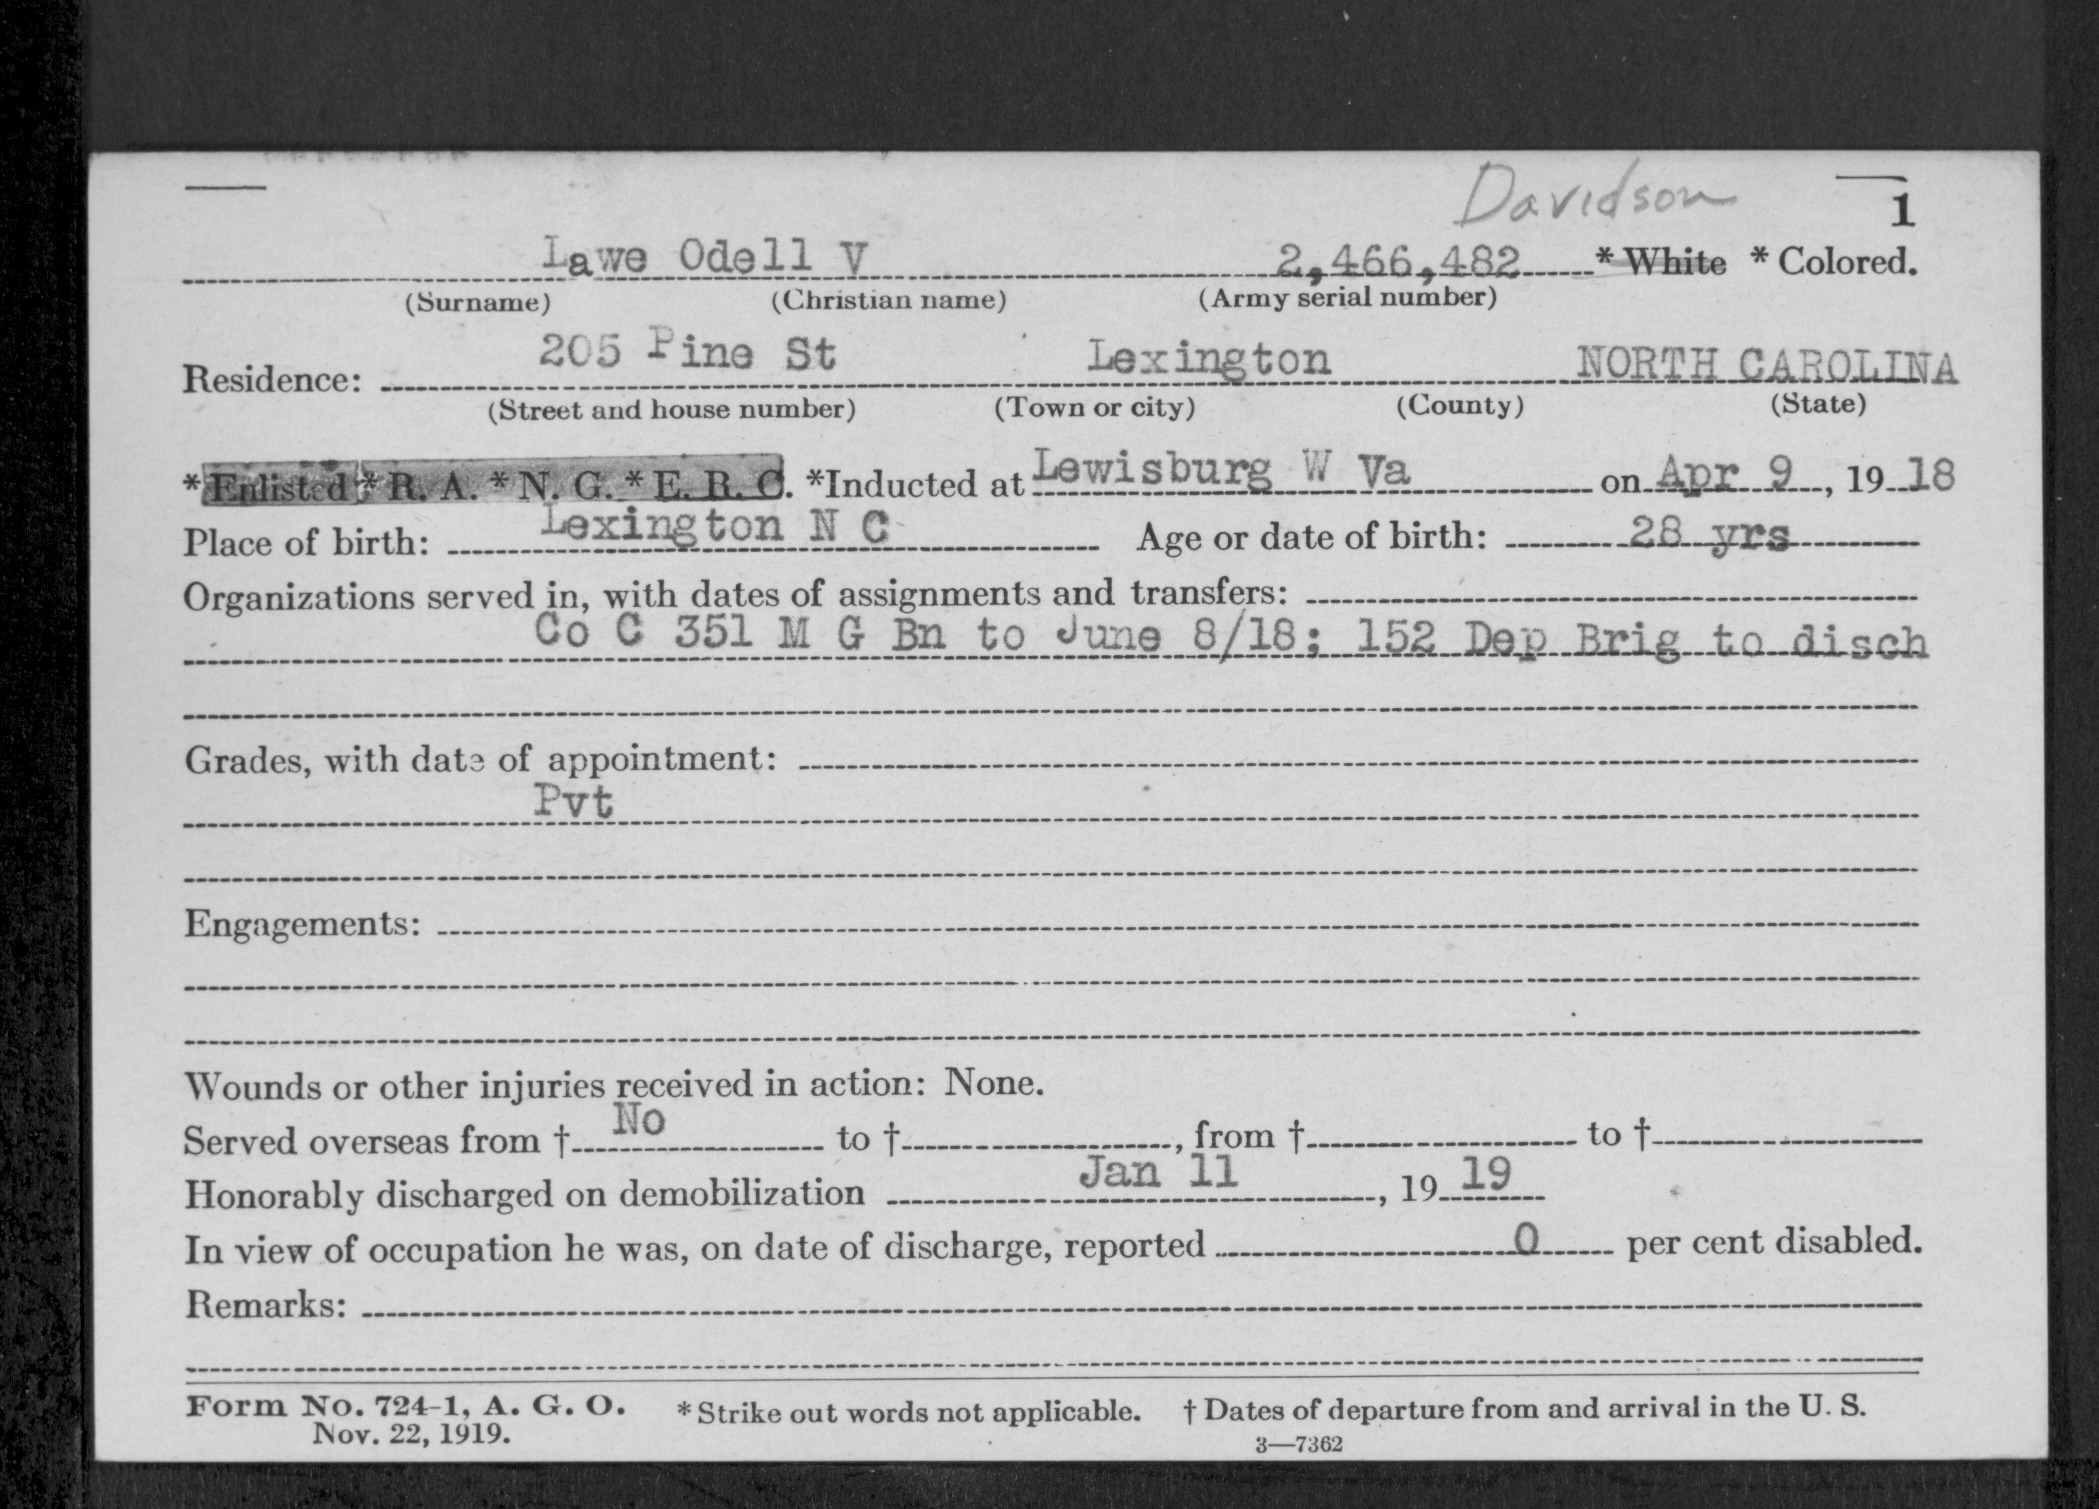 Davidson
1
Lawe Odell V 2,466,482 * White * Colored.
(Surname) (Christian name) (Army serial number)
205 Pine St Lexington NORTH CAROLINA
Residence:
(Street and house number) (Town or city) (County) (State)
* Enlisted * R. A. * N. G. * E. R. C. *Inducted at Lewisburg W Va on Apr 9, 1918
Place of birth: Lexington N C Age or date of birth: 28 yrs
Organizations served in, with dates of assignments and transfers:
Co C 351 M G Bn to June 8/18; 152 Dep Brig to disch
Grades, with date of appointment:
Pvt
Engagements:
Wounds or other injuries received in action: None.
Served overseas from † No to †, from † to †
Honorably discharged on demobilization Jan 11, 1919
In view of occupation he was, on date of discharge, reported 0 per cent disabled.
Remarks:
Form No. 724-1, A. G. O. *Strike out words not applicable. † Dates of departure from and arrival in the U. S.
Nov. 22, 1919. 3—7362